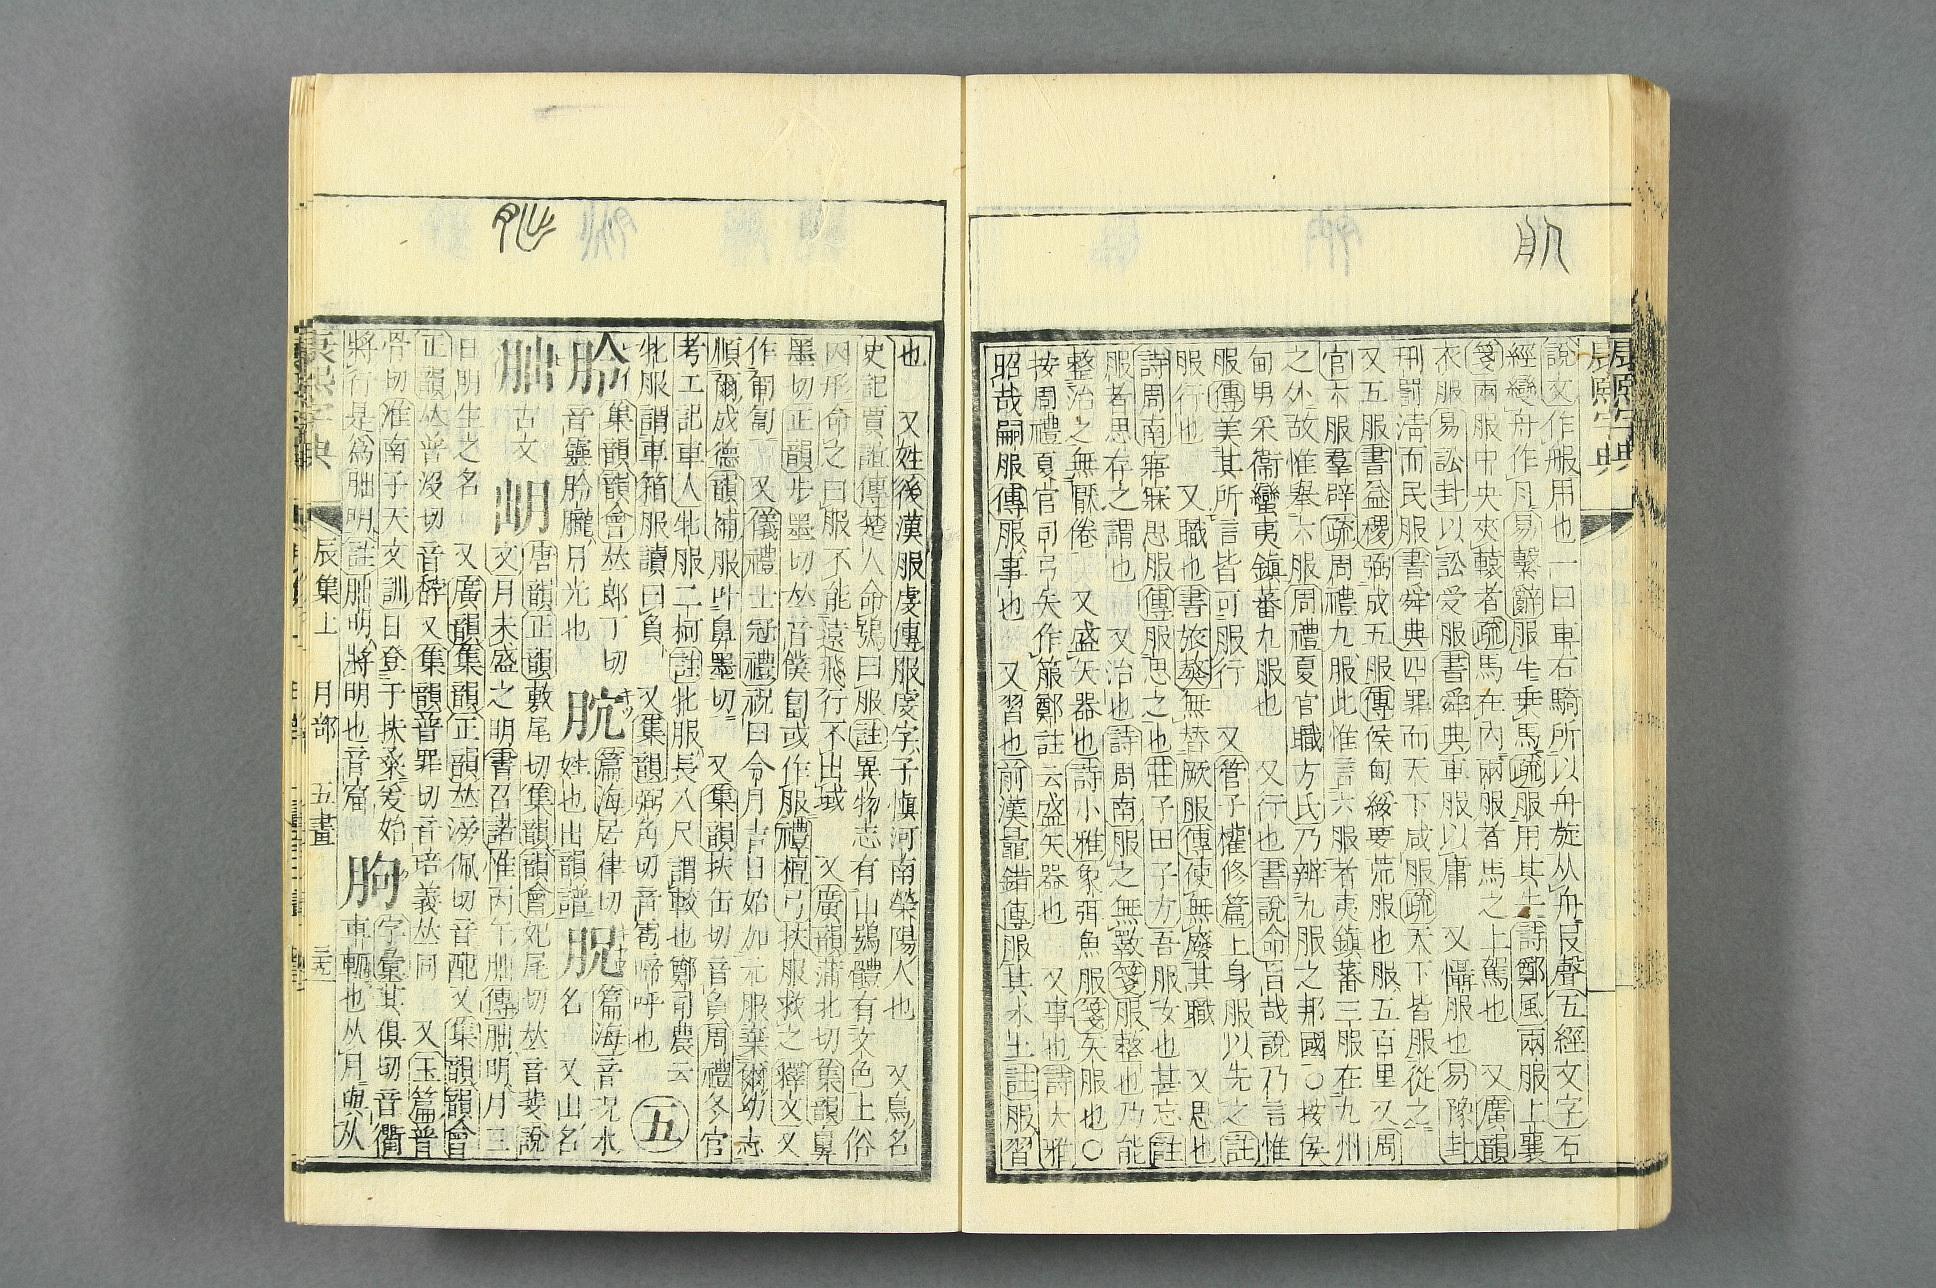 康熙字典
說文作𦨕用也一曰車右騑所以舟旋从舟𠬝聲五經文字石
經變舟作月易繫辭服牛乗馬疏服用其牛詩鄭風兩服上襄
箋兩服中央夾轅者疏馬在內兩服者馬之上駕也 又廣韻
衣服易訟卦以訟受服書舜典車服以庸 又懾服也易豫卦
刑罰淸而民服書舜典四罪而天下咸服疏天下皆服從之
又五服書益稷弼成五服傳侯甸綏要荒服也服五百里又周
官六服羣辟疏周禮九服此惟言六服者夷鎭蕃三服在九州
之外故惟舉六服周禮夏官職方氏乃辨九服之邦國○按侯
甸男采衞蠻夷鎭蕃九服也 又行也書說命旨哉說乃言惟
服傳美其所言皆可服行 又管子權修篇上身服以先之註
服行也 又職也書旅獒無替厥服傳使無廢其職 又思也
詩周南寤寐思服傳服思之也莊子田子方吾服女也甚忘註
服者思存之謂也 又治也詩周南服之無斁箋服整也乃能
整治之無厭倦 又盛矢器也詩小雅象弭魚服箋矢服也○
按周禮夏官司弓矢作箙鄭註云盛矢器也 又事也詩大雅
昭哉嗣服傳服事也 又習也前漢鼂錯傳服其水土註服習
也 又姓後漢服虔傳服虔字子愼河南滎陽人也 又鳥名
史記賈誼傳楚人命鴞曰服註異物志有山鴞體有文色土俗
因形命之曰服不能遠飛行不出域 又廣韻蒲北切集韻鼻
墨切正韻步墨切𠀤音僕匐或作服禮檀弓扶服救之釋文又
作匍匐 又儀禮士冠禮祝曰令月吉日始加元服棄爾幼志
順爾成德韻補服叶鼻墨切 又集韻扶缶切音負周禮冬官
考工記車人牝服二柯註牝服長八尺謂較也鄭司農云
牝服謂車箱服讀曰負 又集韻弼角切音雹謞呼也 五
朎 集韻韻會𠀤郎丁切音靈朎朧月光也 𦙶 篇海居律切姓也出韻譜 䏳 篇海音况水名 又山名
朏 古文 𣍧 唐韻正韻敷尾切集韻韻會妃尾切𠀤音斐說
文月未盛之明書召誥惟丙午朏傳朏明月三
日明生之名 又廣韻集韻正韻𠀤滂佩切音配又集韻韻會
正韻𠀤普沒切音𩑔又集韻普罪切音琣義𠀤同 又玉篇普
骨切淮南子天文訓日登于扶桑爰始
將行是爲朏明註朏明將明也音窟 朐 字彙其俱切音衢車軶也从月與从
康熙字典 辰集上 月部 五畫